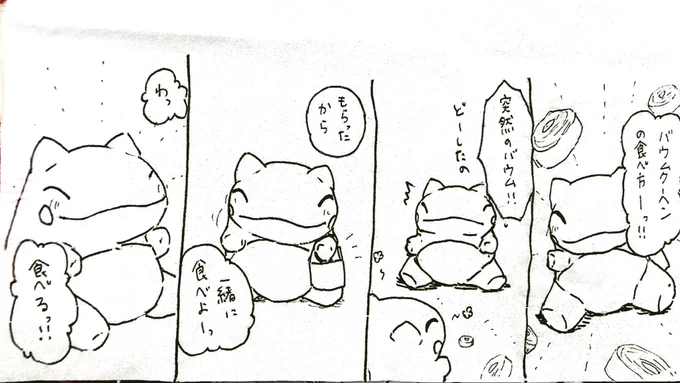 バウムクーヘン
の食べ方ーっ!!
突然のバウム!!
どーしたの
もらった
から
一緒に
食べよーっ
わっ
食べるっ!!